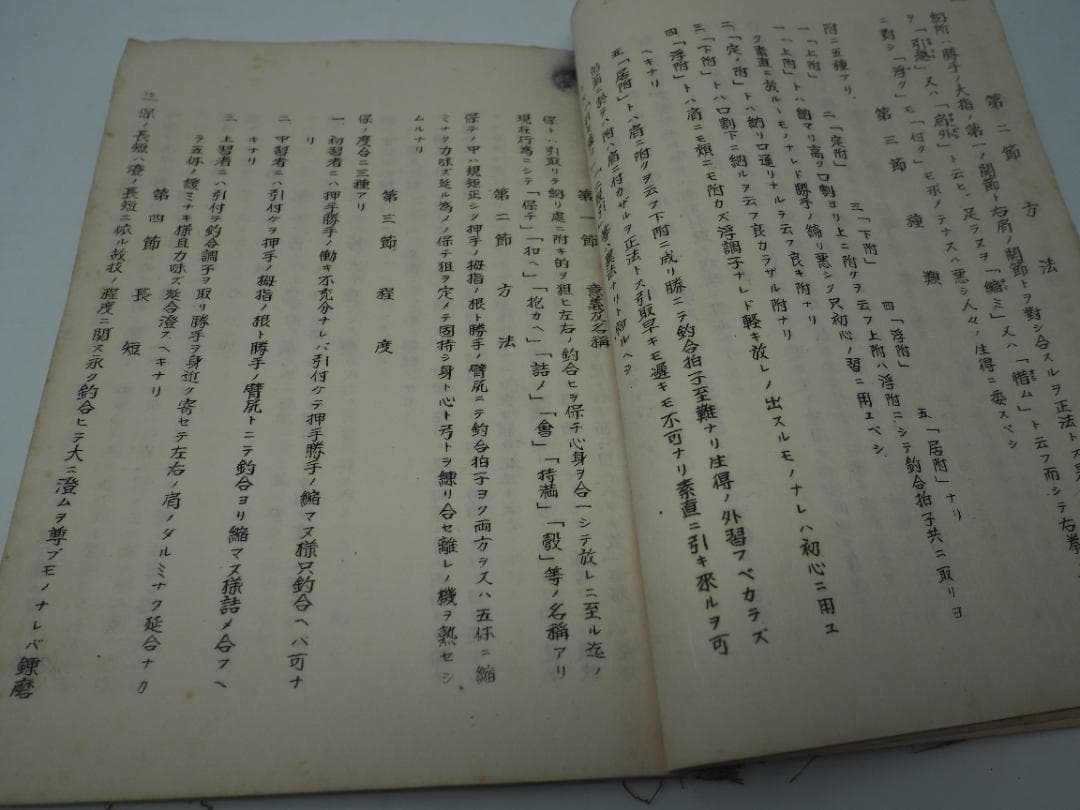 第二節　方法
節所ハ勝手ノ大指ノ第一ノ関節ト右肩ノ関節トヲ對シ合スルヲ正法トス
ヲ「引越」又ハ「肩外」ト云ヒ、足ラヌヲ「縮ミ」又ハ「惜ム」ト云フ而シテ右拳
ニ對シ「浮ク」モ「付ク」モ求ノテナスハ悪シ人々ノ生得ニ委スベシ
第三節　種類
附ニ五種アリ、
一、「上附」　二、「定附」　三、「下附」　四、「浮附」　五、「居附」ナリ
一、「上附」トハ納マリ高ク口割ヨリ上ニ附クヲ云フ上附ハ浮附ニシテ釣合拍子共ニ取リヨ
ク素直ニ放ルヽモノナレド勝手ノ締リ悪シク只初心ノ習ニ用ユベシ
二、「定ノ附」トハ納リ口通リナルヲ云フ良キ附ナリ
三、「下附」トハ口割下ニ納ルヲ云フ良カラザル附ナリ
四、「浮附」トハ肩ニモ頬ニモ附カズ浮調子ナレド軽キ放レノ出スルモノナレハ初心ニ用ユ
ヘキナリ
五、「居附」トハ肩ニ附クヲ云フ下附ニ成リ勝ニテ釣合拍子至難ナリ生得ノ外習フベカラズ
ハ附ハ肩ニ付カザルヲ正法トス引取早キモ遲キモ不可ナリ素直ニ引キ來ルヲ可
第一節　意義及名稱
保トハ引取リテ納リ處ニ附キ的ヲ狙ヒ左右ノ釣合ヒヲ保チ心身ヲ合一シテ放レニ至ル迄ノ
現在行為ニシテ「保チ」「和ヘ」「抱カヘ」「詰メ」「會」「持満」「彀」等ノ名稱アリ
第二節　方法
保チノ中ハ規矩正シク押手ノ拇指ノ根ト勝手ノ臂尻ニテ釣合拍子ヨク両方ヲ又ハ五体ニ縮
ミナク力味ズ延ル為メノ保チ狙ヲ定メテ固持シ身ト心ト弓トヲ練リ合セ離レノ機ヲ熟セシ
ムルナリ
第三節　程度
保ノ度合ニ三種アリ
一、初習者ニハ押手勝手ノ働キ不充分ナレバ引付ケテ押手勝手ノ縮マヌ様只釣合ヘバ可ナ
リ
二、中習者ニハ引付ケヲ押手ノ拇指ノ根ト勝手ノ臂尻トニテ釣合ヨリ縮マヌ様詰メ合フヘ
キナリ
三、上習者ニハ引付テ釣合調子ヲ取リ勝手ヲ身近ク寄セテ左右ノ肩ノタルミナク延合ナカ
ラ五体ノ緩ミナキ様且力味ズ延合澄スヘキナリ
第四節　長短
保ノ長短ハ澄ノ長短ニ依ル故技ノ程度ニ関ス永ク釣合ヒテ大ニ澄ムヲ尊ブモノナレバ錬磨